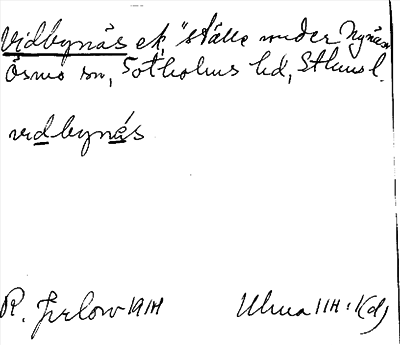 Vidbynäs ek, "ställe under Nynäs
Ösmo sn, Sotholms hd, Sthms l.
vidbynås
R. Jirlow 1914 Ulma 114:1(d)